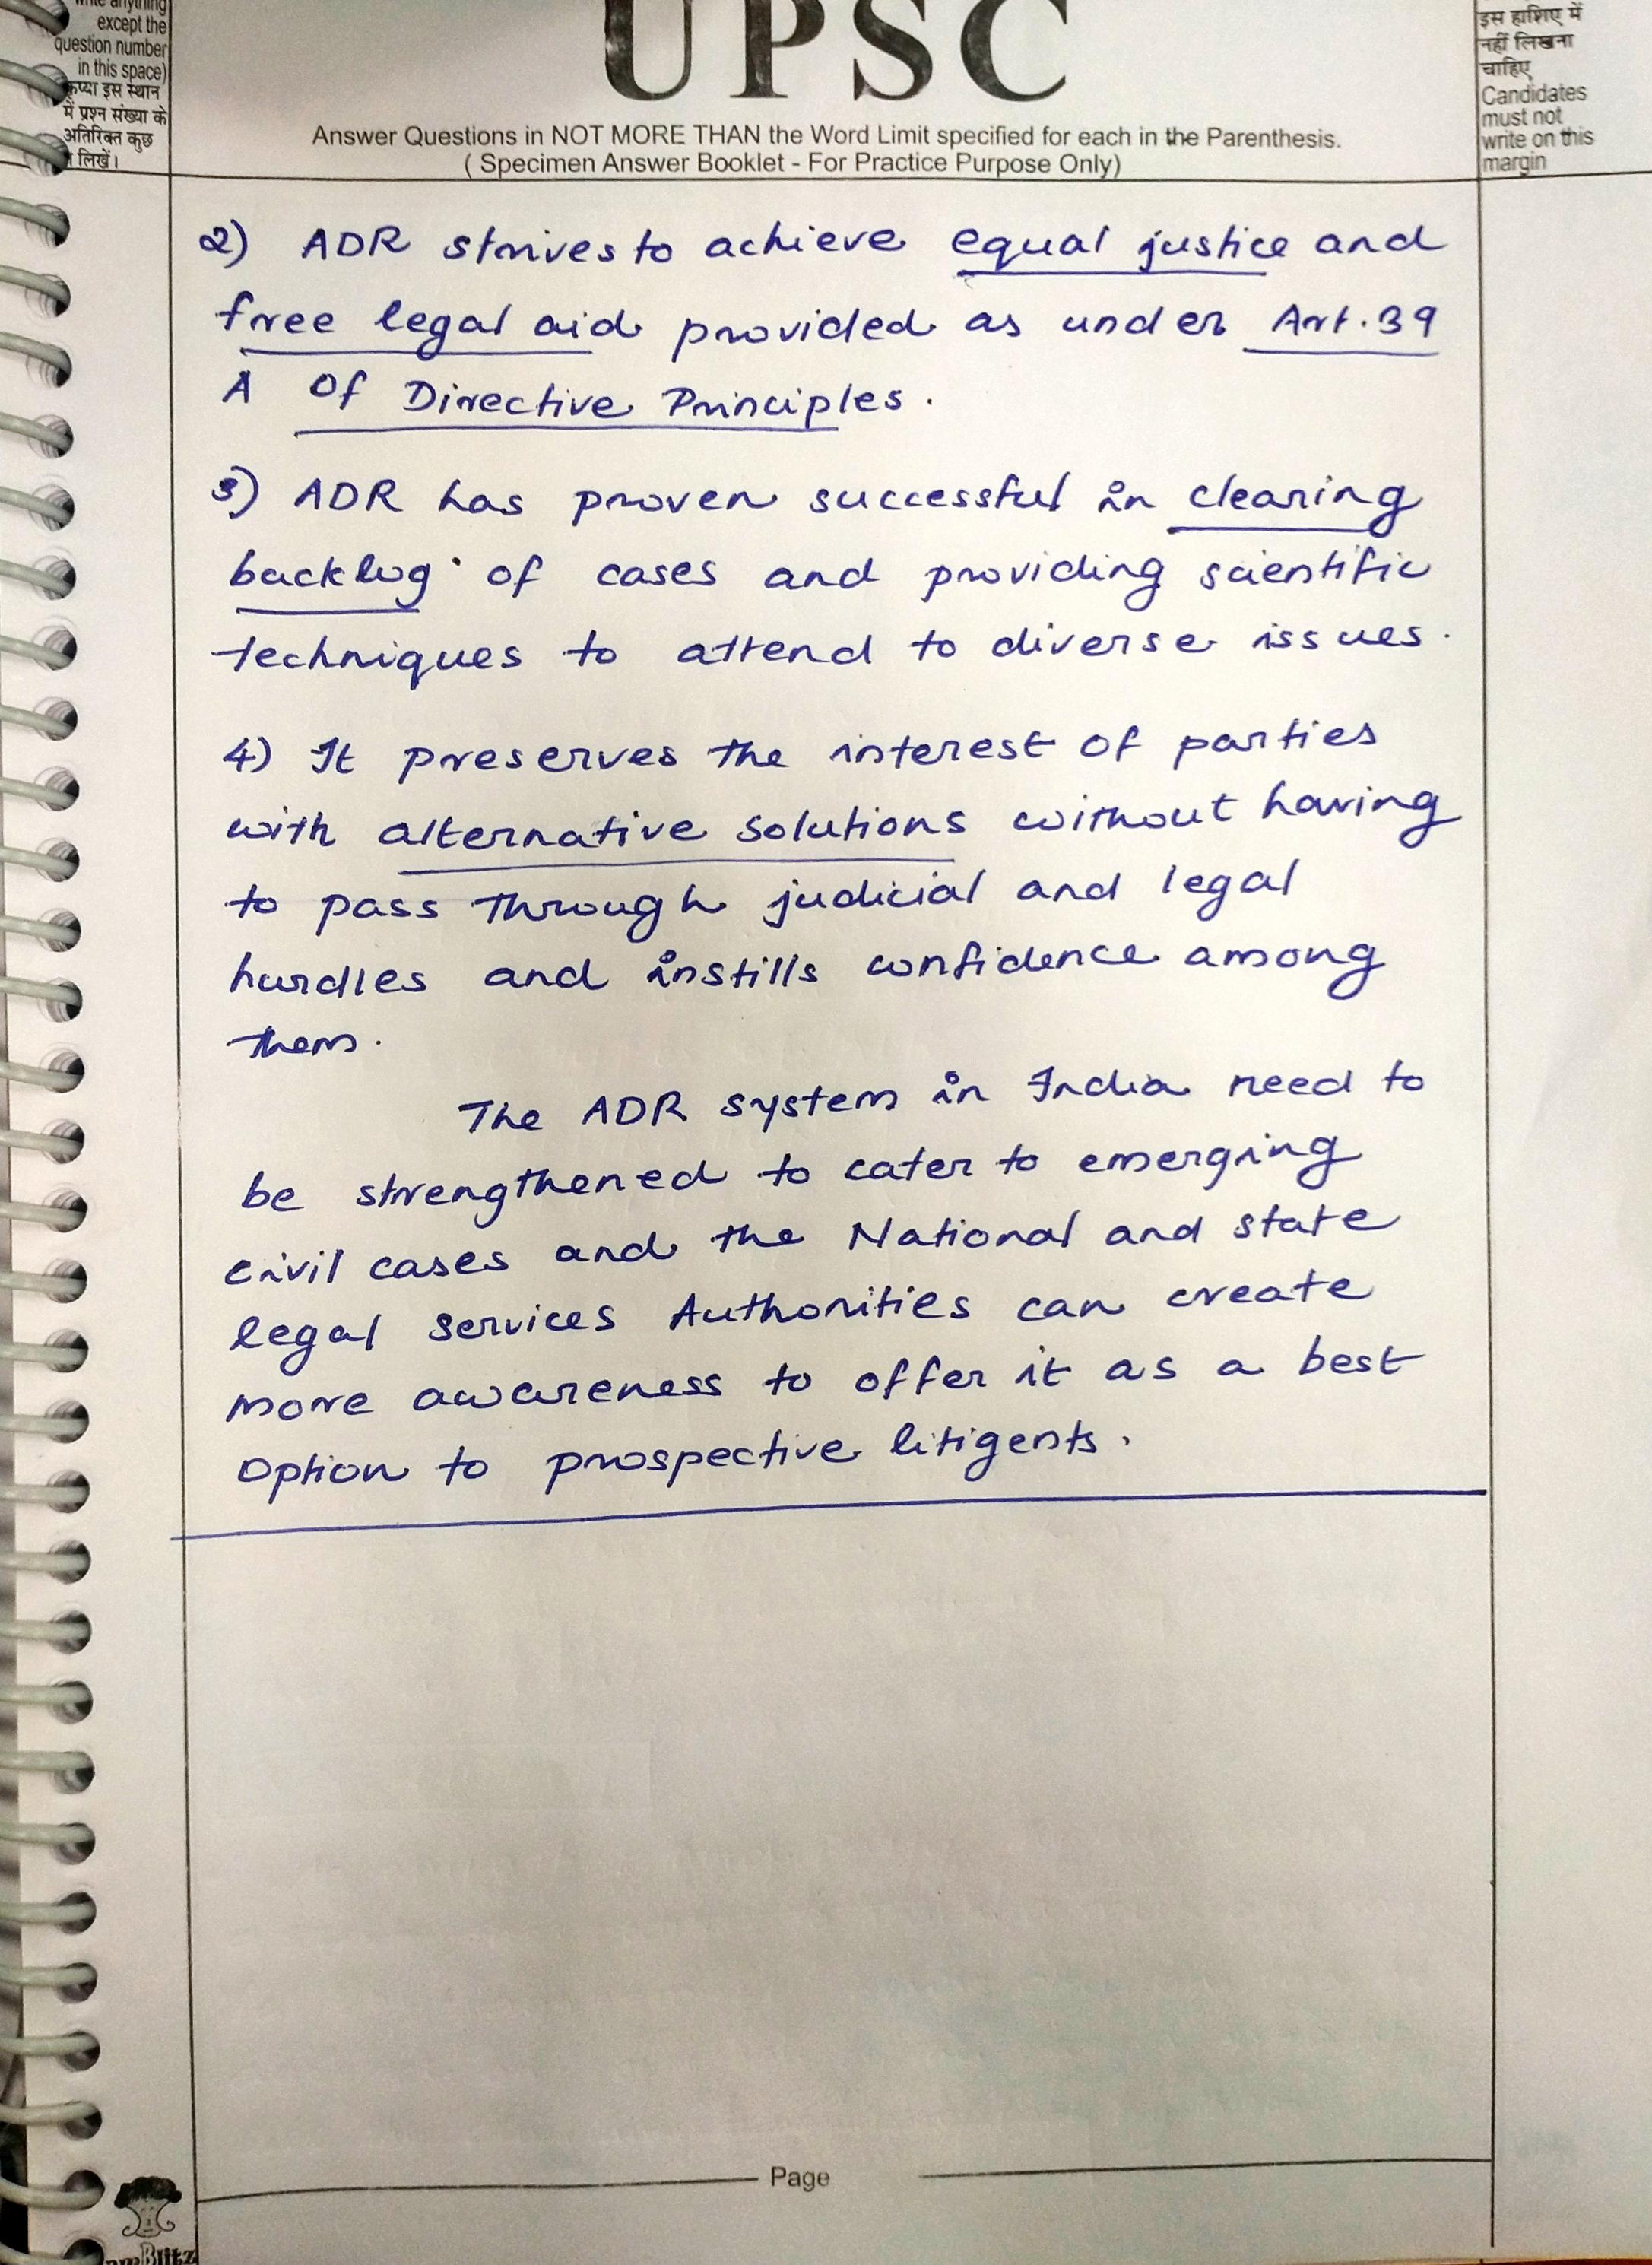 write anything
except the
question number
in this space)
कृप्या इस स्थान
में प्रश्न संख्या के
अतिरिक्त कुछ
लिखें।
UPSC
Answer Questions in NOT MORE THAN the Word Limit specified for each in the Parenthesis.
( Specimen Answer Booklet - For Practice Purpose Only)
इस हाशिए में
नहीं लिखना
चाहिए
Candidates
must not
write on this
margin
2) ADR strives to achieve equal justice and
free legal aid provided as under Art. 39
A of Directive Principles.
3) ADR has proven successful in clearing
backlog of cases and providing scientific
techniques to attend to diverse issues.
4) It preserves the interest of parties
with alternative solutions without having
to pass through judicial and legal
hurdles and instills confidence among
them.
The ADR system in India need to
be strengthened to cater to emerging
civil cases and the National and state
legal services Authorities can create
more awareness to offer it as a best
option to prospective litigents.
Page
Blitz